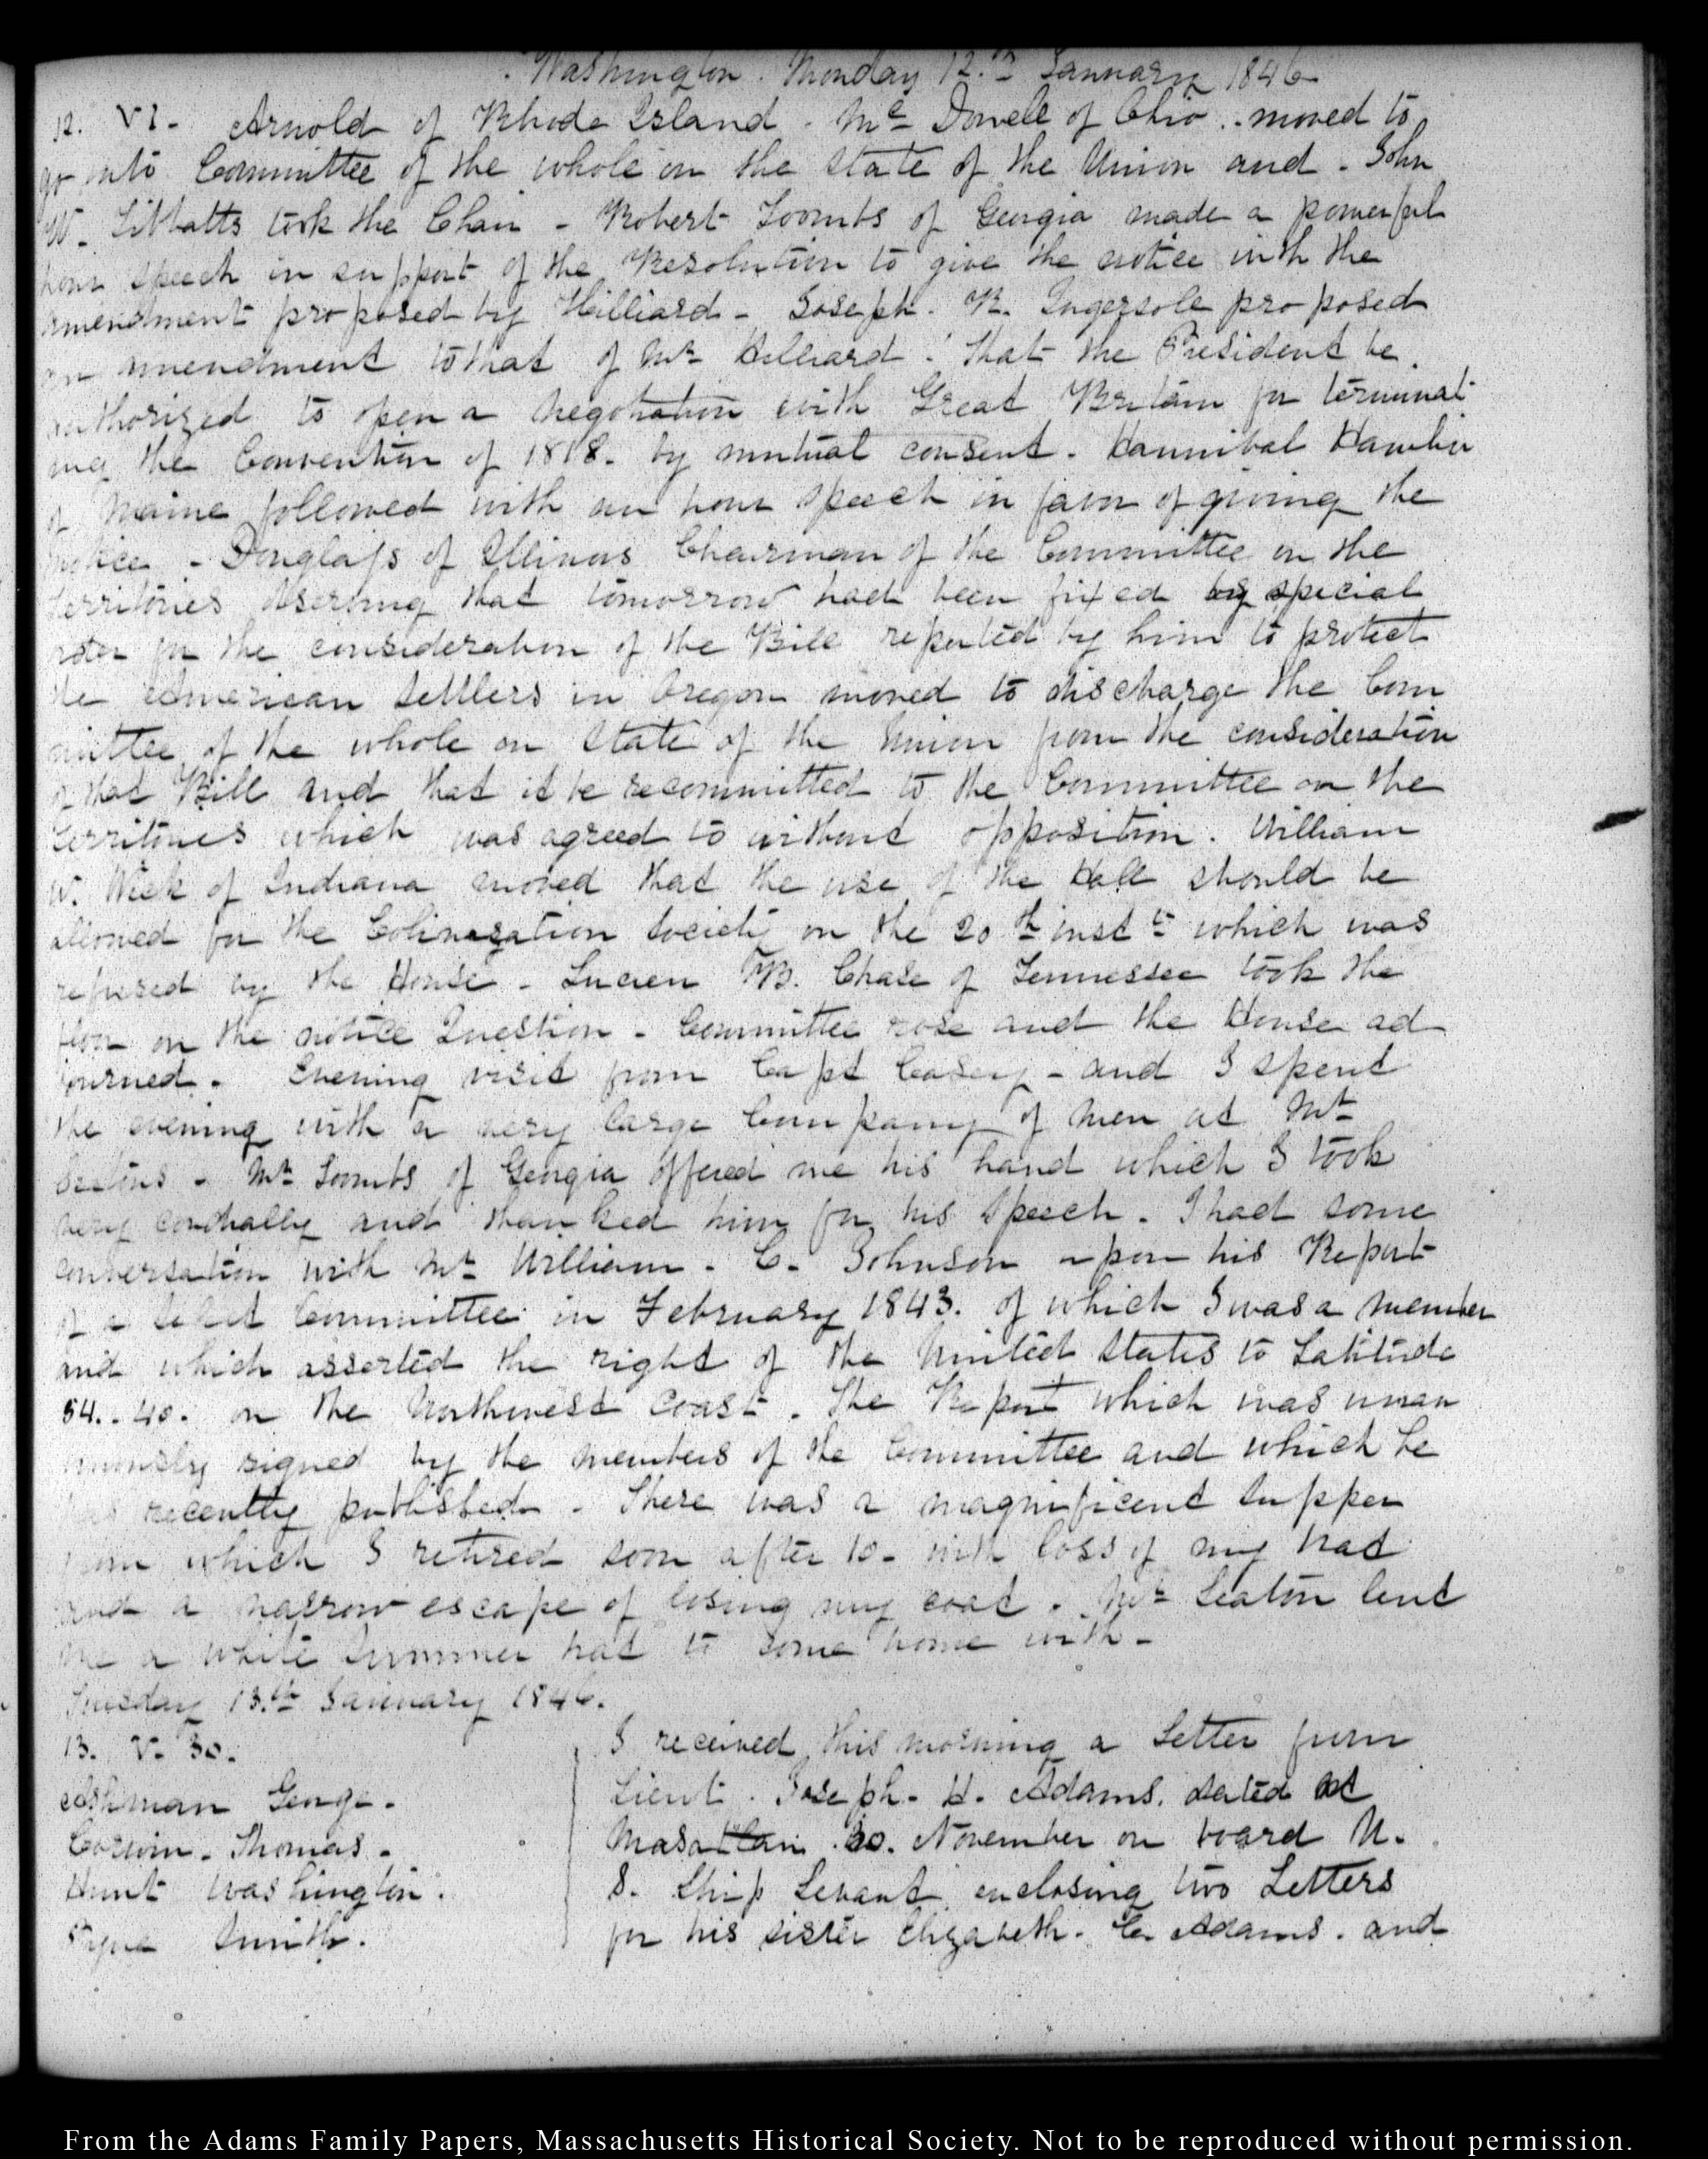 Washington. Monday 12.th January 1846
12. VI. Arnold of Rhode Island. Mc Dowell of Ohio.. moved to
go into Committee of the whole on the state of the Union and. John
W. Tibbatts took the Chair - Robert Toombs of Georgia made a powerful
hour speech in support of the Resolution to give the notice with the
amendment proposed by Hilliard - Joseph. R. Ingersoll proposed
an amendment to that of Mr Hilliard. That the President be
authorized to open a negotiation with Great Britain for terminat
ing the Convention of 1818. by mutual consent. Hannibal Hamlin
of Maine followed with an hour speech in favor of giving the
notice - Douglass of Illinois Chairman of the Committee on the
Territories observing that tomorrow had been fixed by special
order for the consideration of the Bill reported by him to protect
the American Settlers in Oregon moved to discharge the Com
mittee of the whole on State of the Union from the consideration
of that Bill and that it be recommitted to the Committee on the
Territories which was agreed to without opposition. William
W. Wick of Indiana moved that the use of the Hall should be
allowed for the Colinazation Society on the 20th inst t which was
refused by the House - Lucien B. Chase of Tennessee took the
floor on the notice Question - Committee rose and the House ad
journed. Evening visit from Capt Casey - and I spent
the evening with a very large Company of men at Mr
Seatons - Mr Toombs of Georgia offered me his hand which I took
very cordially and thanked him for his speech. I had some
conversation with Mr William. C. Johnson upon his Report
of a select Committee in February 1843. of which I was a member
and which asserted the right of the United States to Latitude
54.. 40. on the Northwest Coast. The Report which was unan
imously signed by the members of the Committee and which he
has recently published. There was a magnificent supper
from which I retired soon after 10 - with loss of my hat
and a narrow escape of losing my coat. Mr Seaton lent
me a white summer hat to come home with -
Tuesday 13.th January 1846.
13. V. 30.
Ashman George.
Corwin. Thomas.
Hunt Washington.
Smith.
I received this morning a Letter from
Lieut. Joseph. H. Adams. dated at
Masatlan 30. November on board U.
S. Ship Levant enclosing two Letters
for his sister Elizabeth. C. Adams. and
From the Adams Family Papers, Massachusetts Historical Society. Not to be reproduced without permission.